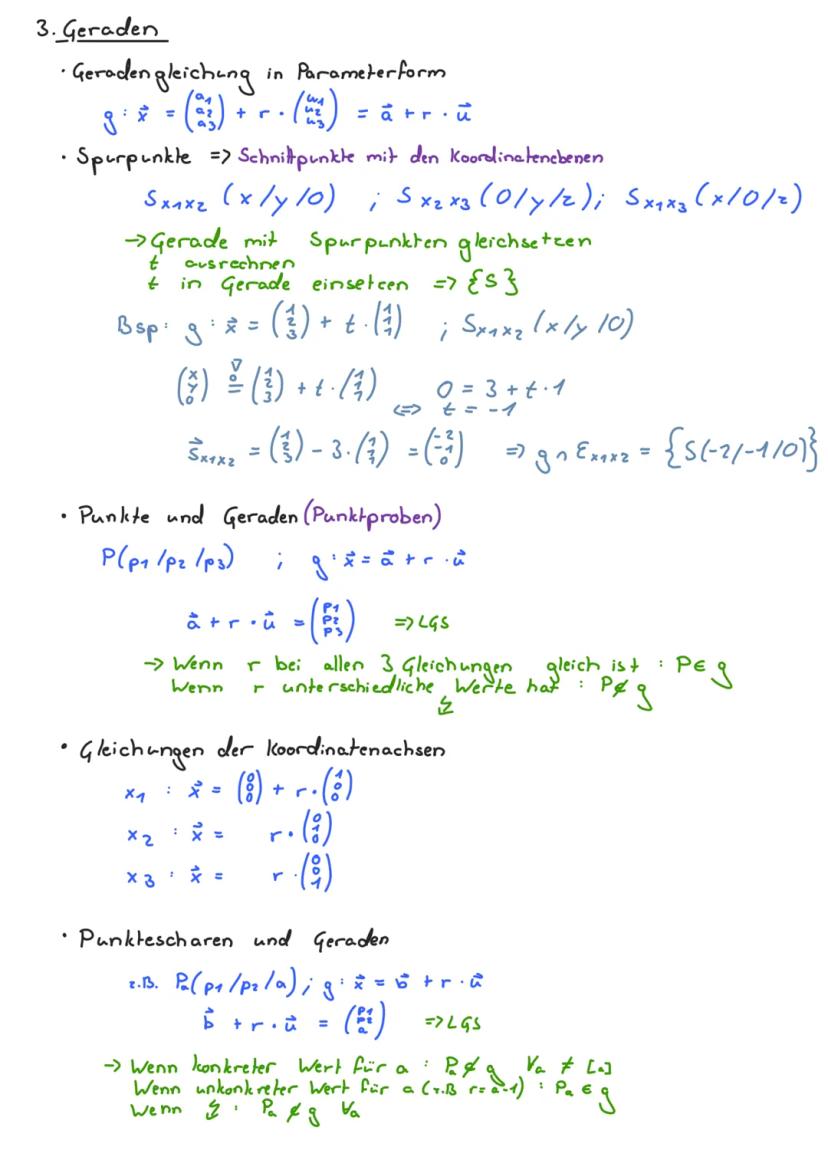 3. Geraden
· Geradengleichung in Parameterform
g : x⃗ = (a1 a2 a3) + r · (u1 u2 u3) = a⃗ + r · u⃗
· Spurpunkte => Schnittpunkte mit den Koordinatenebenen
Sx1x2 (x/y/0) ; Sx2x3 (0/y/z); Sx1x3 (x/0/z)
→ Gerade mit Spurpunkten gleichsetzen
t ausrechnen
t in Gerade einsetzen => {S}
Bsp: g : x⃗ = (1 2 3) + t · (1 1 1) ; Sx1x2 (x/y/0)
(x y 0) = (1 2 3) + t · (1 1 1) 0 = 3 + t · 1
<=> t = -1
S⃗x1x2 = (1 2 3) - 3 · (1 1 1) = (-2 -1 0) => g ∩ Ex1x2 = {S(-2/-1/0)}
· Punkte und Geraden (Punktproben)
P(p1/p2/p3) ; g : x⃗ = a⃗ + r · u⃗
a⃗ + r · u⃗ = (p1 p2 p3) => LGS
→ Wenn r bei allen 3 Gleichungen gleich ist : P ∈ g
Wenn r unterschiedliche Werte hat : P ∉ g
↯
· Gleichungen der Koordinatenachsen
x1 : x⃗ = (0 0 0) + r · (1 0 0)
x2 : x⃗ = r · (0 1 0)
x3 : x⃗ = r · (0 0 1)
· Punktescharen und Geraden
z.B. Pa(p1/p2/a) ; g : x⃗ = b⃗ + r · u⃗
b⃗ + r · u⃗ = (p1 p2 a) => LGS
→ Wenn konkreter Wert für a : Pa ∉ g ∀a ≠ [a]
Wenn unkonkreter Wert für a (z.B r = a-1) : Pa ∈ g
Wenn ↯ : Pa ∉ g ∀a